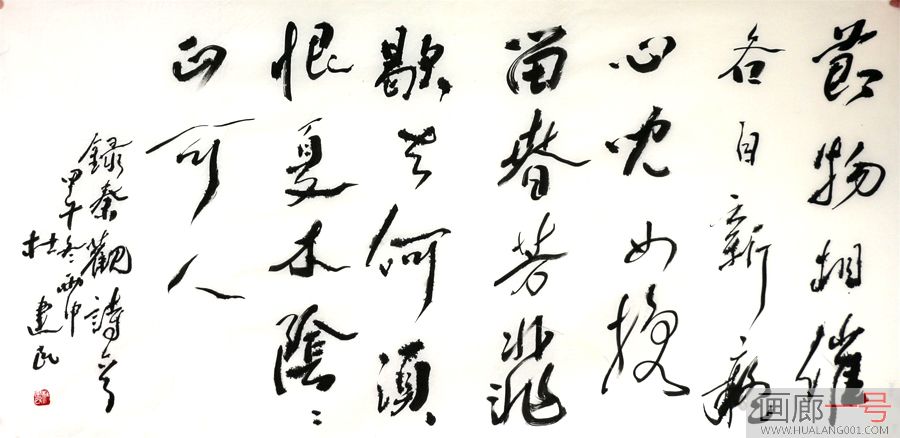 節物相催
各自新癡
心児女挽
留春芳菲
歇去何須
恨夏木陰〻
正可人
錄秦觀詩一首
甲午冬雨中
杜建民
画廊一号
WWW.HUALANG001.COM